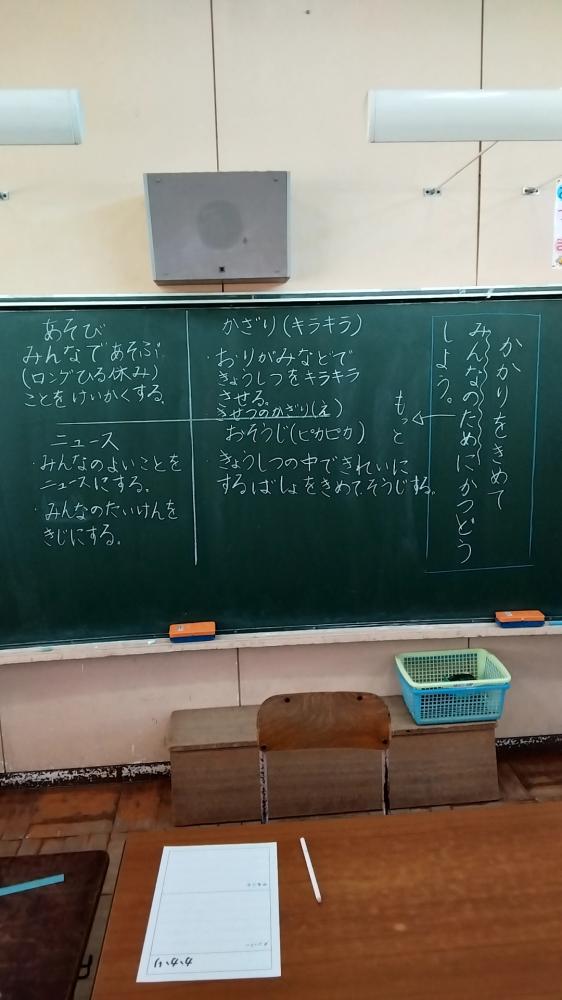 かかりをきめて
みんなのためにかつどう
しよう。
もっと
かざり(キラキラ)
・おりがみなどで
きょうしつをキラキラ
させる。
きせつのかざり(え)
おそうじ(ピカピカ)
・きょうしつの中できれいに
するばしょをきめて、そうじする。
あそび
みんなであそぶ
(ロングひる休み)
ことをけいかくする。
ニュース
・みんなのよいことを
ニュースにする。
・みんなのたいけんを
きじにする。
かかり
メンバー